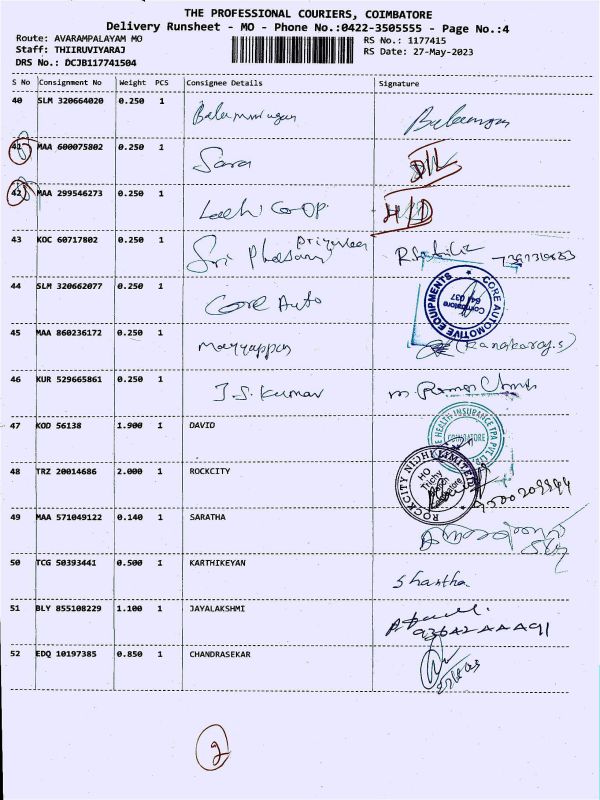 THE PROFESSIONAL COURIERS, COIMBATORE
Delivery Runsheet - MO - Phone No.:0422-3505555 - Page No.:4
Route: AVARAMPALAYAM MO RS No.: 1177415
Staff: THIIRUVIYARAJ RS Date: 27-May-2023
DRS No.: DCJB117741504
S No Consignment No Weight PCS Consignee Details Signature
40 SLM 320664020 0.250 1 Balamurugan
41 MAA 600075802 0.250 1 Sara D/L
42 MAA 299546273 0.250 1 CO-OP H/D
43 KOC 60717802 0.250 1 Sri
44 SLM 320662077 0.250 1 Core Auto CORE AUTOMOTIVE EQUIPMENTS Coimbatore 641 037
45 MAA 860236172 0.250 1 Mayyappan (Kanakaraj.s)
46 KUR 529665861 0.250 1 J.S. Kumar
47 KOD 56138 1.900 1 DAVID HEALTH INSURANCE TPA COIMBATORE
48 TRZ 20014686 2.000 1 ROCKCITY ROCKCITY NIDHI LIMITED HO Trichy
49 MAA 571049122 0.140 1 SARATHA
50 TCG 50393441 0.500 1 KARTHIKEYAN Shantha
51 BLY 855108229 1.100 1 JAYALAKSHMI
52 EDQ 10197385 0.850 1 CHANDRASEKAR
2